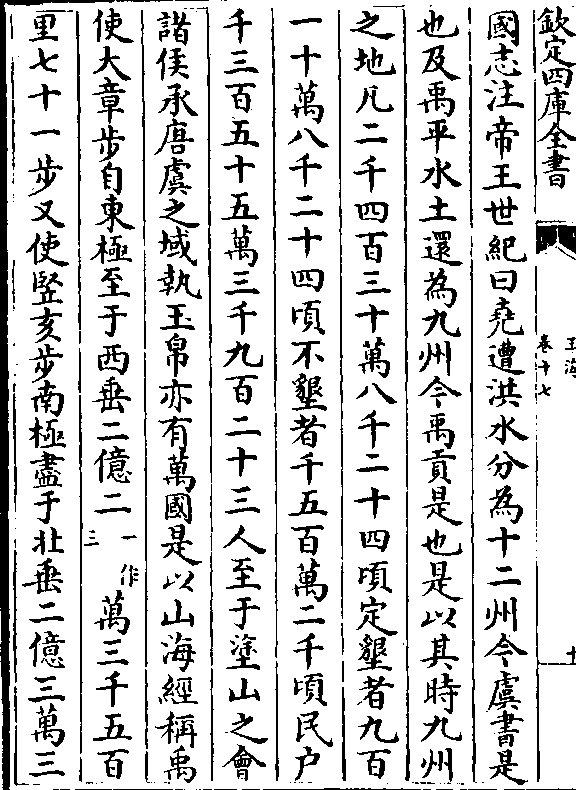 欽定四庫全書
玉海
卷十七
十
國志注帝王世紀曰堯遭洪水分為十二州今虞書是
也及禹平水土還為九州今禹貢是也是以其時九州
之地凡二千四百三十萬八千二十四頃定墾者九百
一十萬八千二十四頃不墾者千五百萬二千頃民户
千三百五十五萬三千九百二十三人至于塗山之會
諸侯承唐虞之域執玉帛亦有萬國是以山海經稱禹
使大章步自東極至于西垂二億二一作三萬三千五百
里七十一步又使竪亥步南極盡于北垂二億三萬三